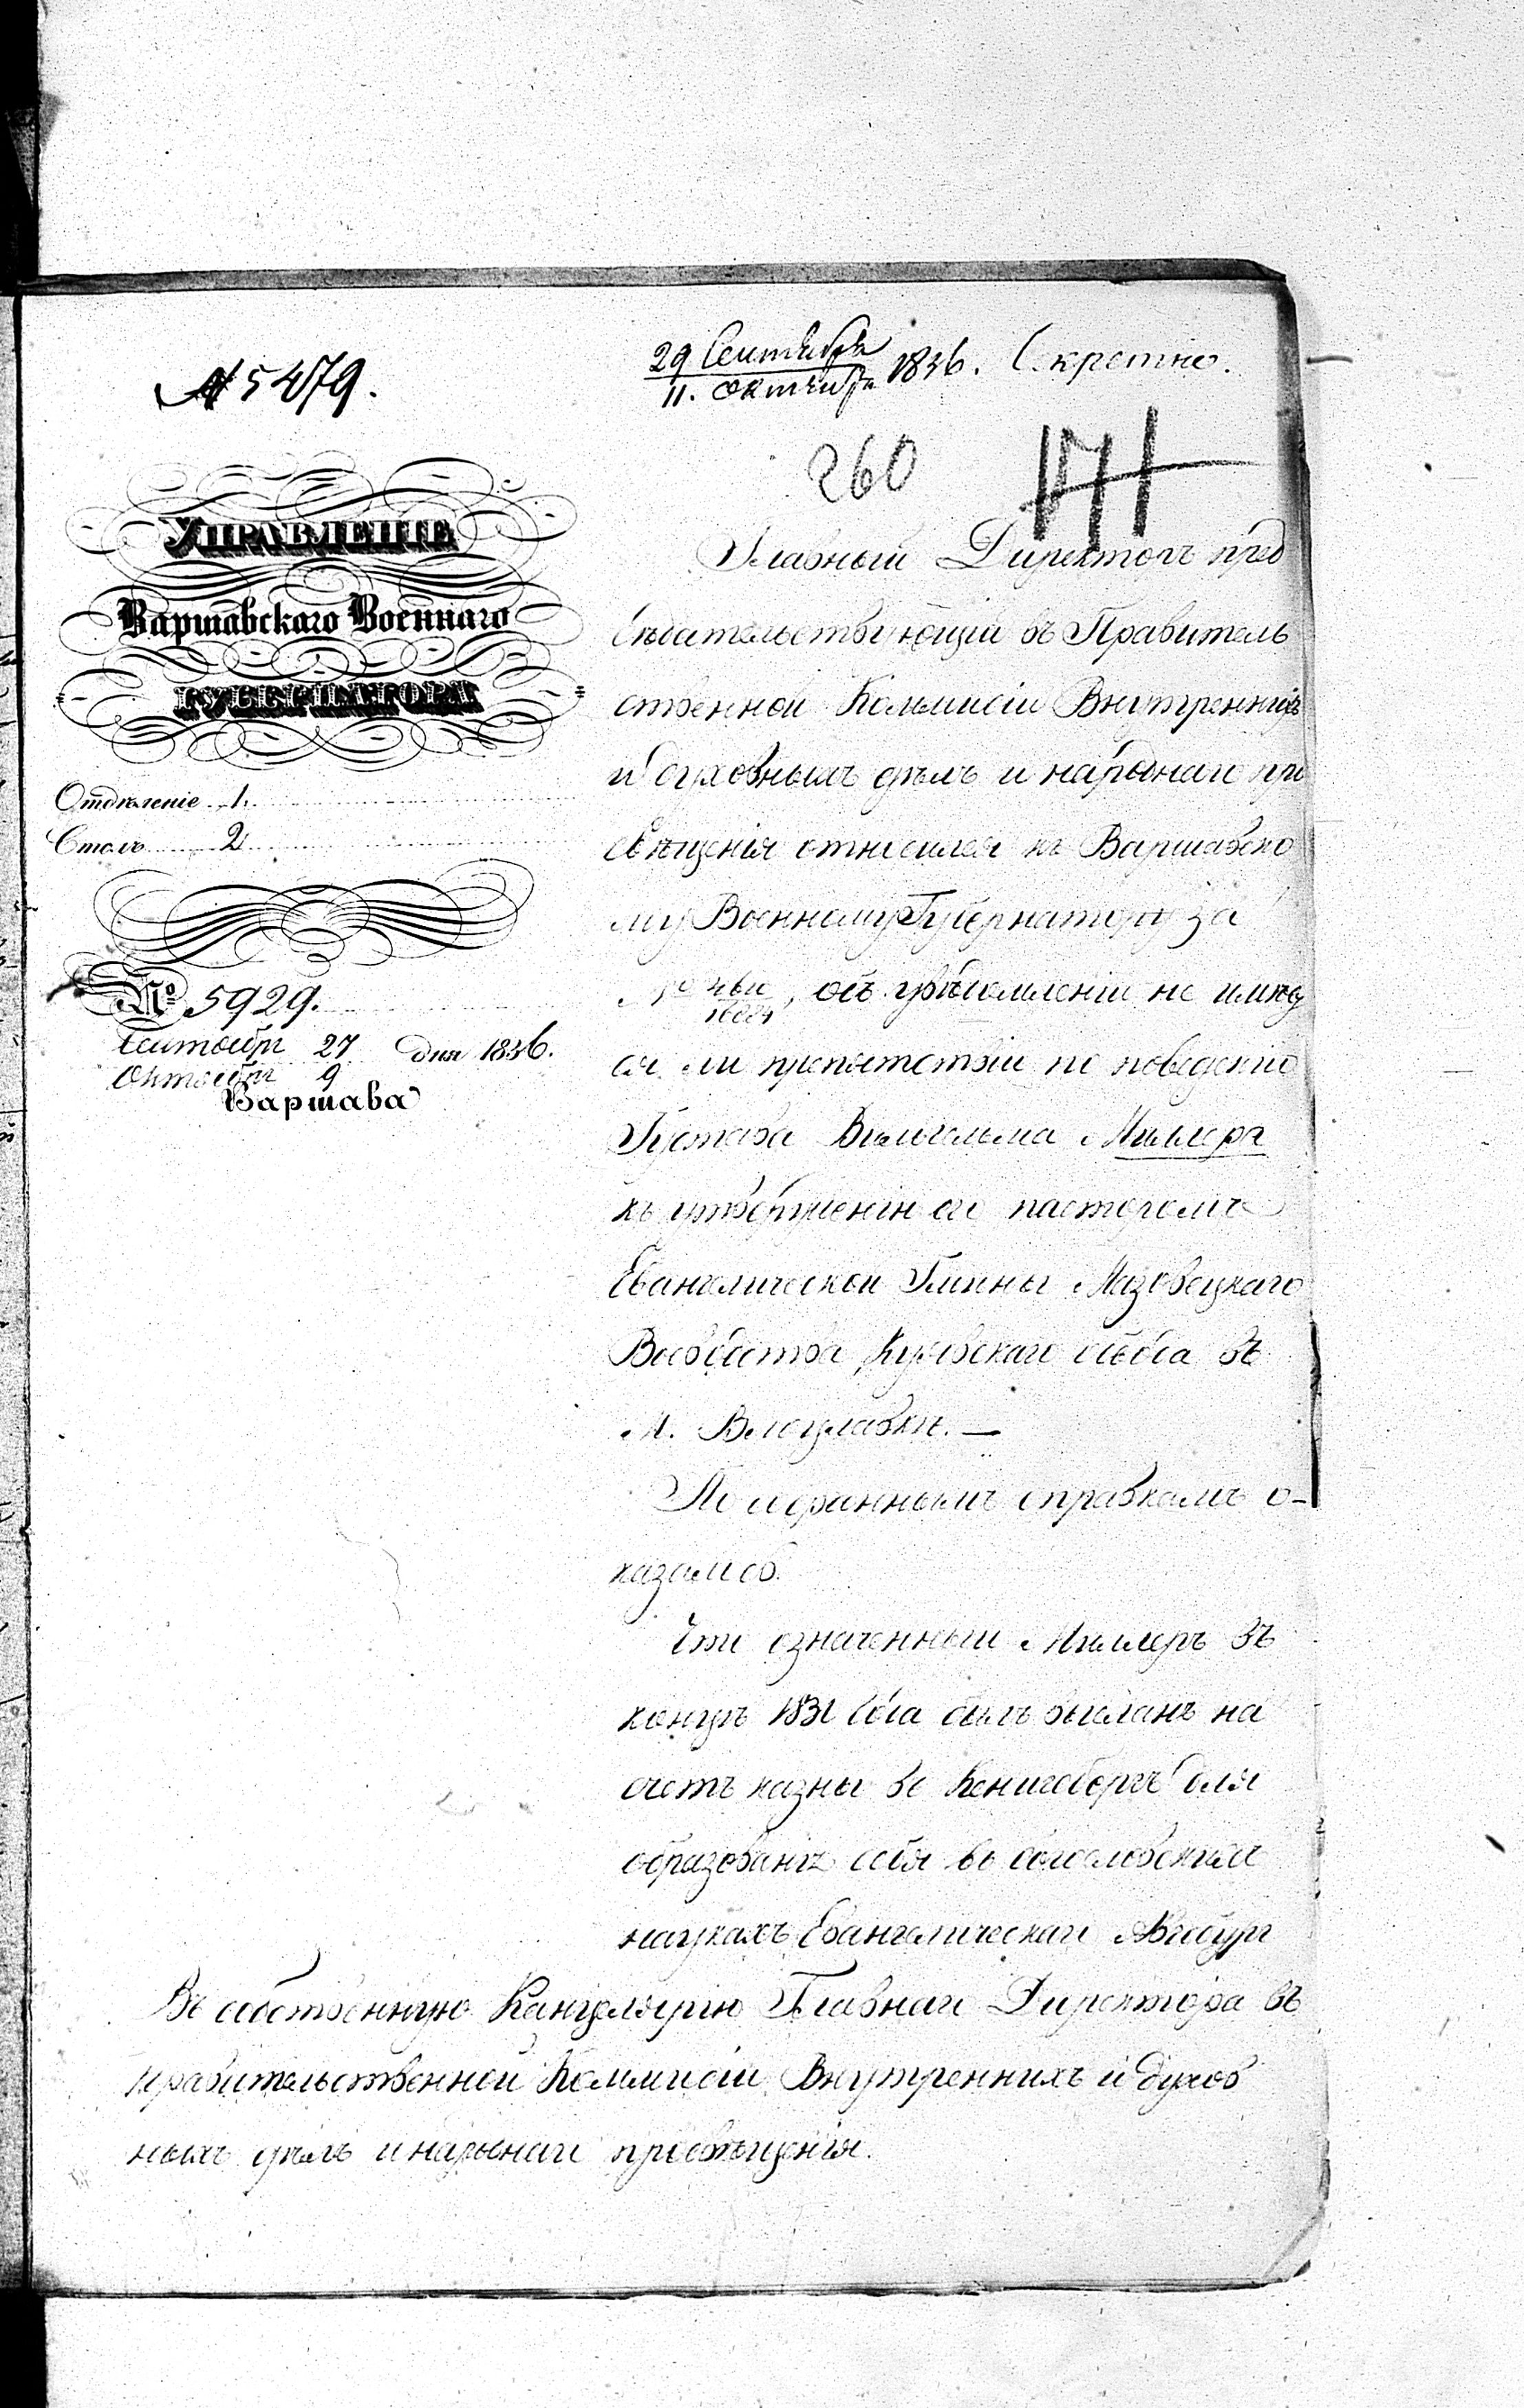 № 5479.
29 Сентября
11. Октября 1836. Секретно.
260
171
УПРАВЛЕНІЕ
Варшавскаго Военнаго
ГУБЕРНАТОРА
Отдѣленіе 1.
Столъ 2
№ 5929.
Сентября 27 дня 1836.
Октября 9
Варшава
Главный Директоръ пред
сѣдательствующій въ Правитель
ственной Коммисіи Внутреннихъ
и духовныхъ дѣлъ и народнаго про
свѣщенія относился къ Варшавско
му Военному Губернатору за
№, объ увѣдомленіи не имѣет
ся ли препятствій по поведенію
Густава Вильгельма Миллера
къ утвержденію его пасторомъ
Евангелической Гмины Мазовецкаго
Воеводства, Куявскаго обвода въ
м. Влоцлавкѣ. —
По собраннымъ справкамъ о-
казалось
Что означенный Миллеръ въ
концѣ 1831 года былъ высланъ на
счетъ казны въ Кенигсбергъ для
образованія себя въ богословскихъ
наукахъ Евангелическаго Аугсбург
Въ собственную Канцелярію Главнаго Директора въ
Правительственной Коммисіи Внутреннихъ и духов
ныхъ дѣлъ и народнаго просвѣщенія.